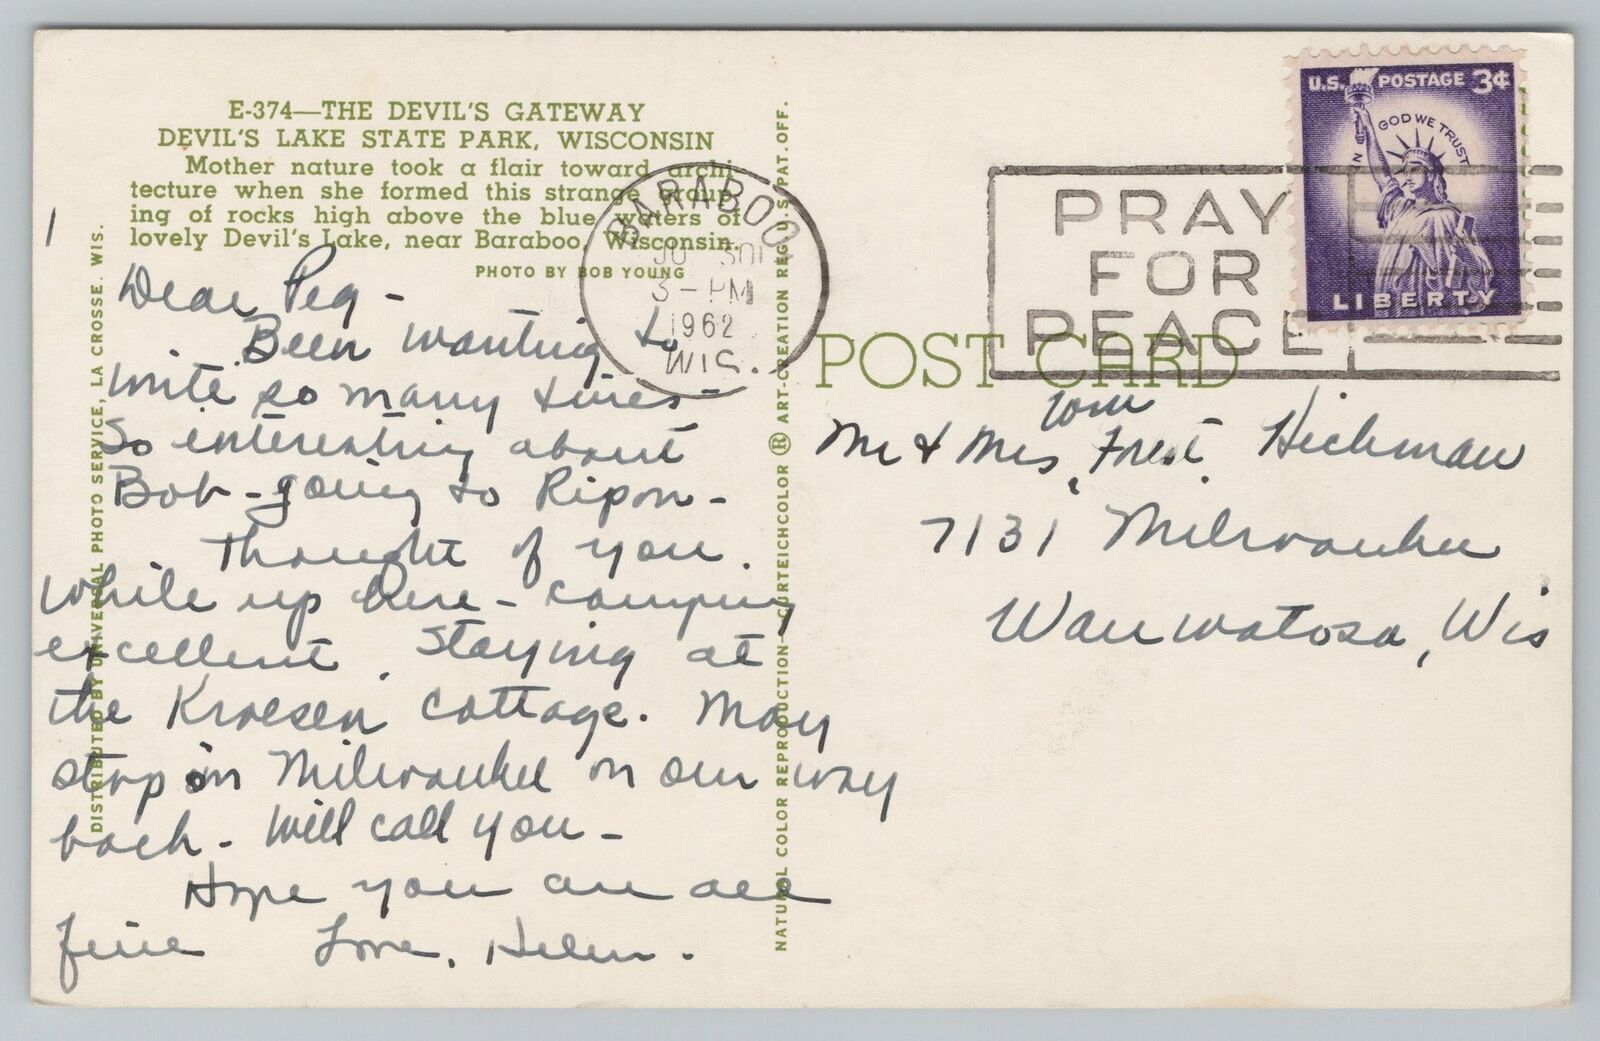 E-374—THE DEVIL'S GATEWAY
DEVIL'S LAKE STATE PARK, WISCONSIN
Mother nature took a flair toward archi
tecture when she formed this strange group-
ing of rocks high above the blue waters of
lovely Devil's Lake, near Baraboo, Wisconsin.
PHOTO BY BOB YOUNG
DISTRIBUTED BY UNIVERSAL PHOTO SERVICE, LA CROSSE, WIS.
Dear Peg -
Been wanting to
write so many times -
So interesting about
Bob - going to Ripon -
Thought of you
while up here - camping
excellent. Staying at
the Kroesen cottage. May
stop in Milwaukee on our way
back - Will call you -
Hope you are all
fine Love, Helen.
NATURAL COLOR REPRODUCTION—CURTEICHCOLOR ® ART-CREATION REG. U.S. PAT. OFF.
BARABOO
3-PM
1962
WIS.
PRAY
FOR
PEACE
U.S. POSTAGE 3¢
IN GOD WE TRUST
LIBERTY
POST CARD
Mr & Mrs Forest Hickman
7131 Milwaukee
Wauwatosa, Wis